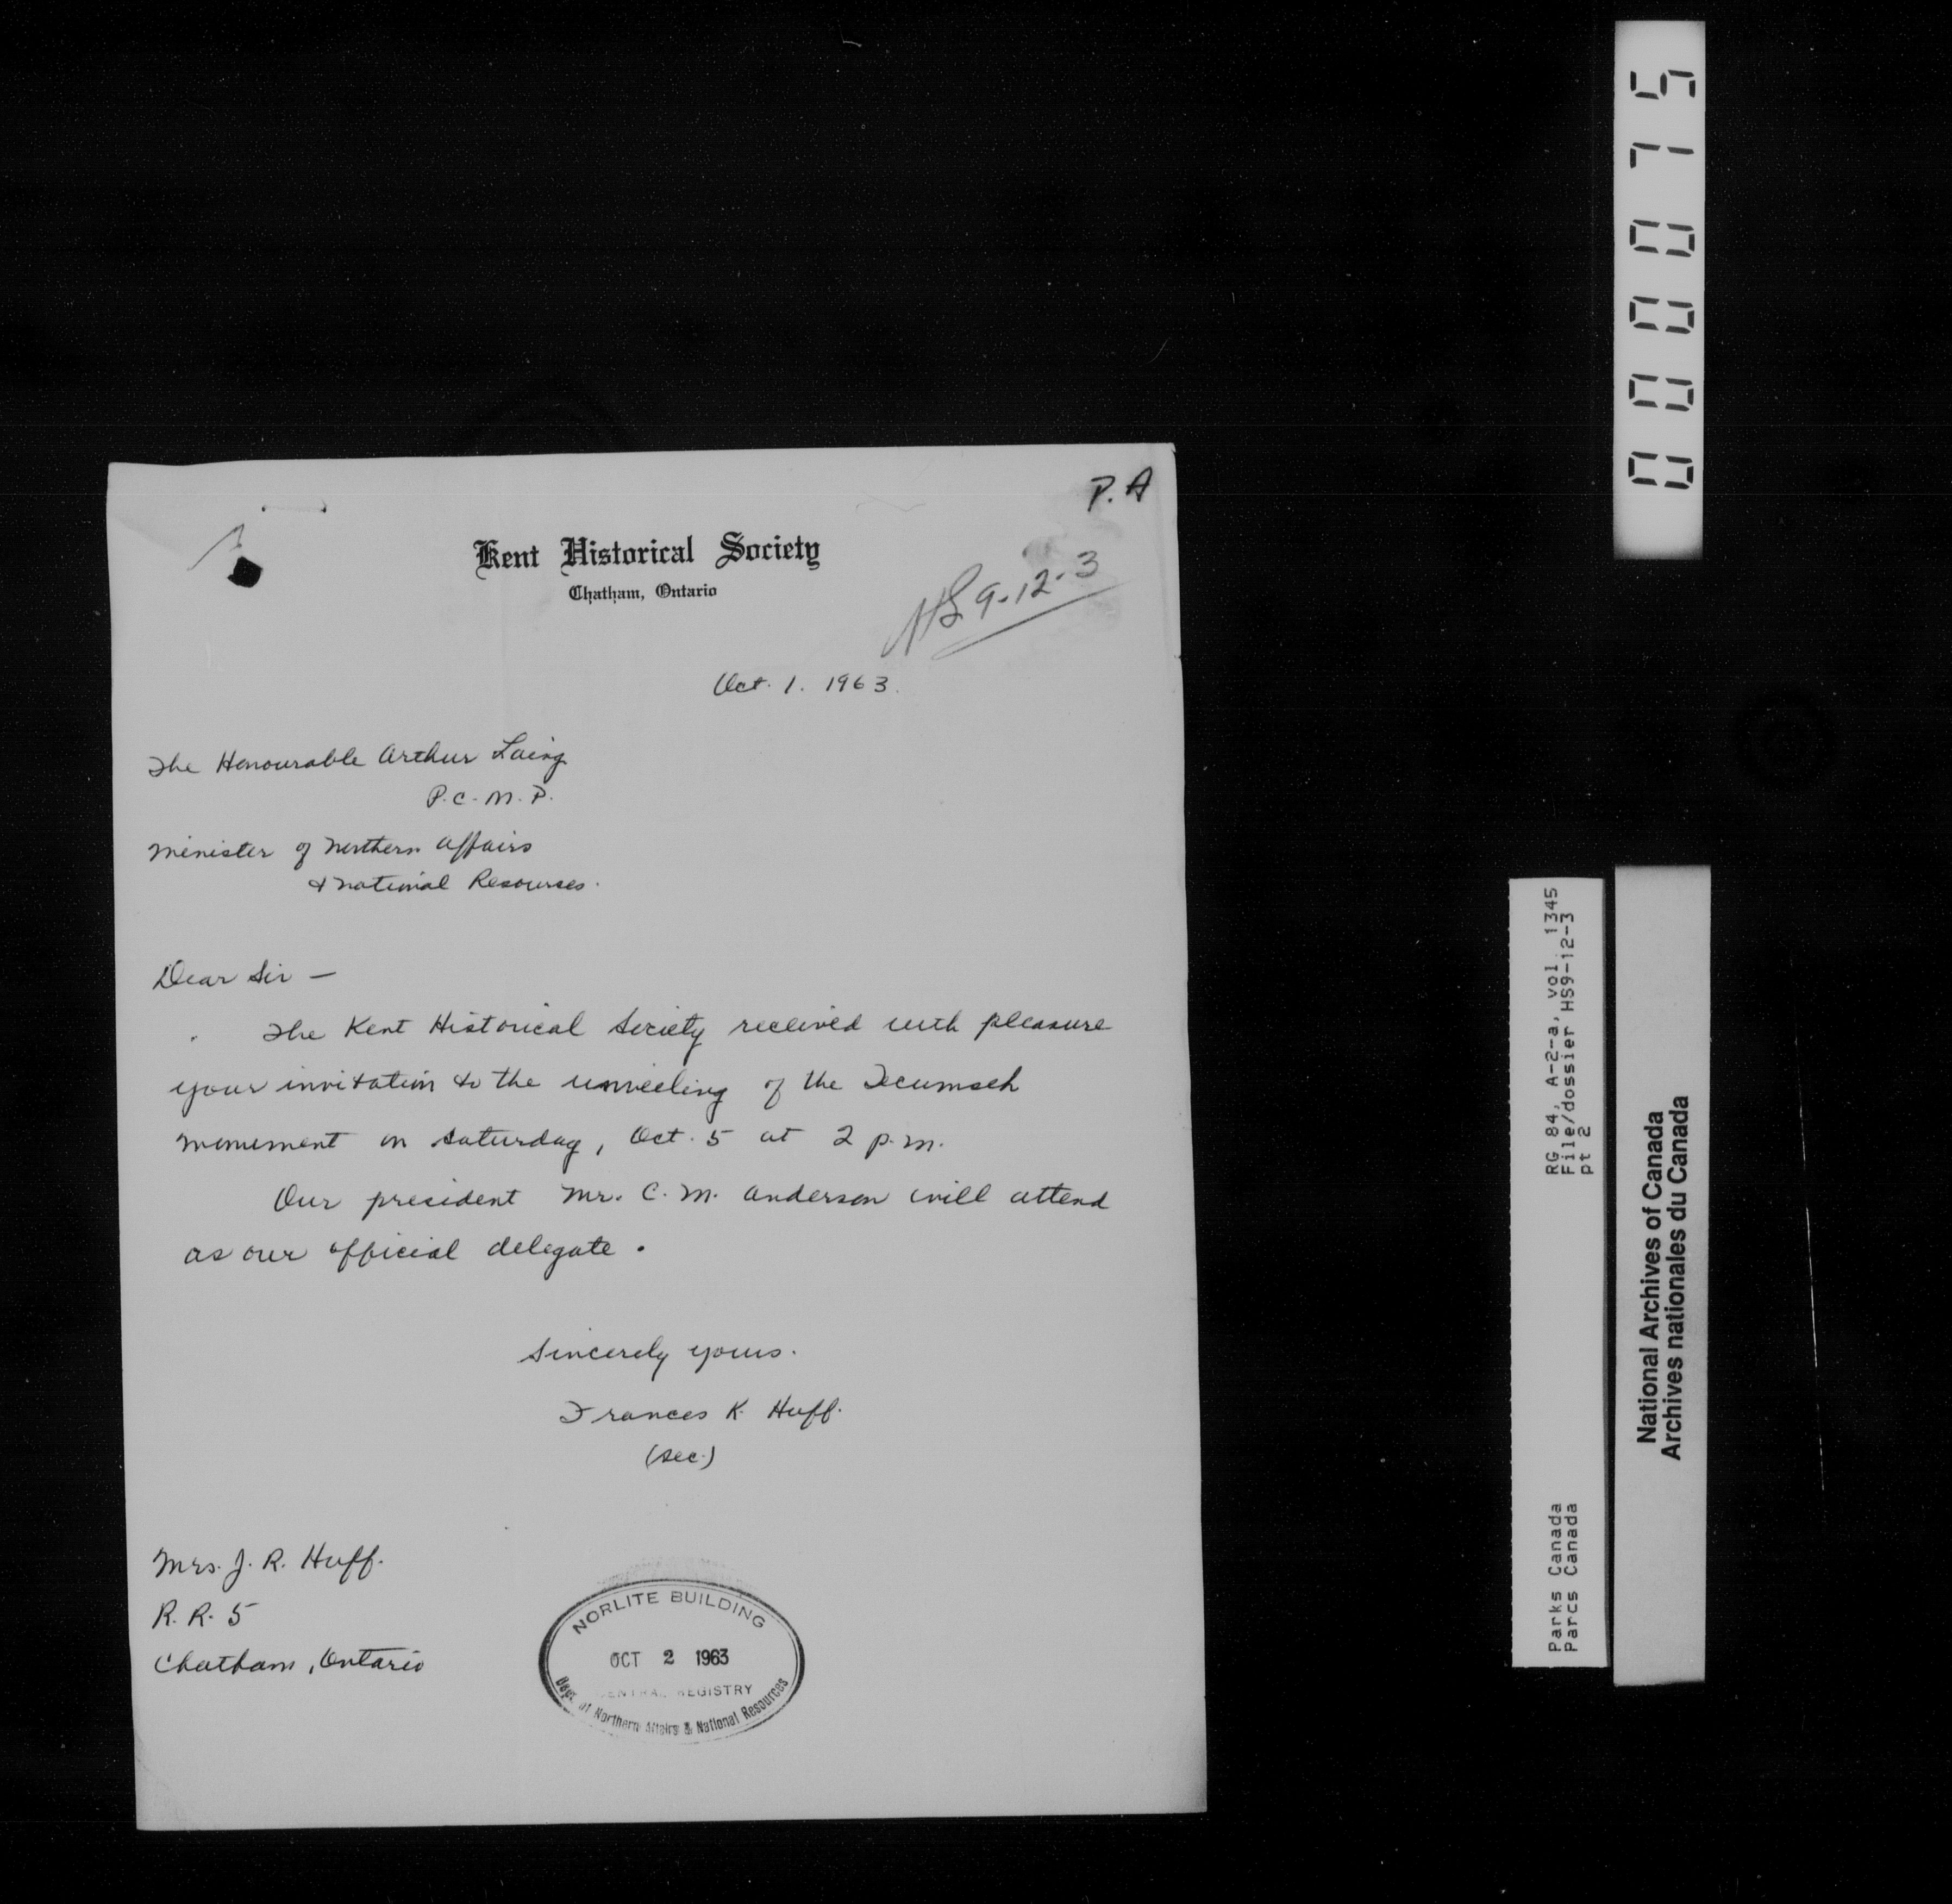 P. A
Kent Historical Society
Chatham, Ontario
HS 9-12-3
Oct. 1. 1963.
The Honourable Arthur Laing
P.C. M. P.
Minister of Northern Affairs
& National Resourses.
Dear Sir —
The Kent Historical Society received with pleasure
your invitation to the unveeling of the Tecumseh
monument on Saturday, Oct. 5 at 2 p.m.
Our president Mr. C. M. Anderson will attend
as our official delegate.
Sincerely yours.
Frances K. Huff.
(Sec.)
Mrs. J. R. Huff.
R. R. 5
Chatham, Ontario
NORLITE BUILDING
OCT 2 1963
CENTRAL REGISTRY
Dept. of Northern Affairs & National Resources
000075
RG 84, A-2-a, vol. 1345
File/dossier HS9-12-3
pt 2
Parks Canada
Parcs Canada
National Archives of Canada
Archives nationales du Canada